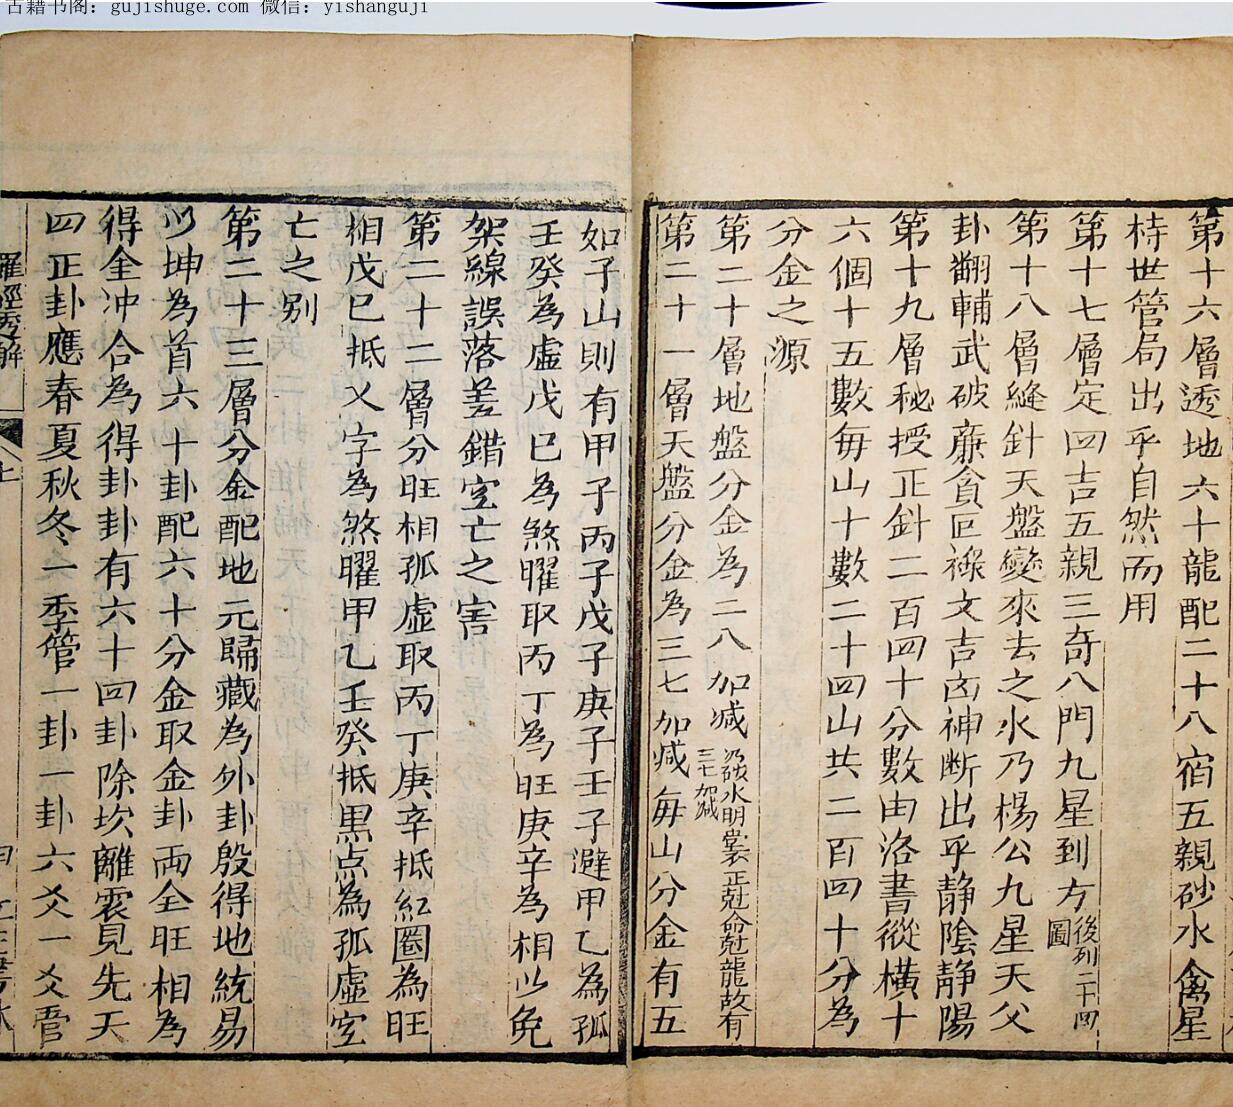 古籍书阁：gujishuge.com 微信：yishanguji
第十六層透地六十龍配二十八宿五親砂水禽星
持世管局出乎自然而用
第十七層定四吉五親三奇八門九星到方後列二十四圖
第十八層縫針天盤變來去之水乃楊公九星天父
卦翻輔武破廉貪巨祿文吉凶神断出乎静陰静陽
第十九層秘授正針二百四十分數由洛書縱橫十
六個十五數每山十數二十四山共二百四十分為
分金之源
第二十層地盤分金為二八加减乃砂水明堂正尅命尅龍故有三七加减
第二十一層天盤分金為三七加减每山分金有五
如子山則有甲子丙子戊子庚子壬子避甲乙為孤
壬癸為虛戊巳為煞曜取丙丁為旺庚辛為相以免
架線誤落差錯空亡之害
第二十二層分旺相孤虛取丙丁庚辛抵紅圈為旺
相戊巳抵乂字為煞曜甲乙壬癸抵黑点為孤虛空
亡之别
第二十三層分金配地元歸藏為外卦殷得地統易
以坤為首六十卦配六十分金取金卦兩全旺相為
得全冲合為得卦卦有六十四卦除坎離震兄先天
四正卦應春夏秋冬一季管一卦一卦六爻一爻管
羅經秘解